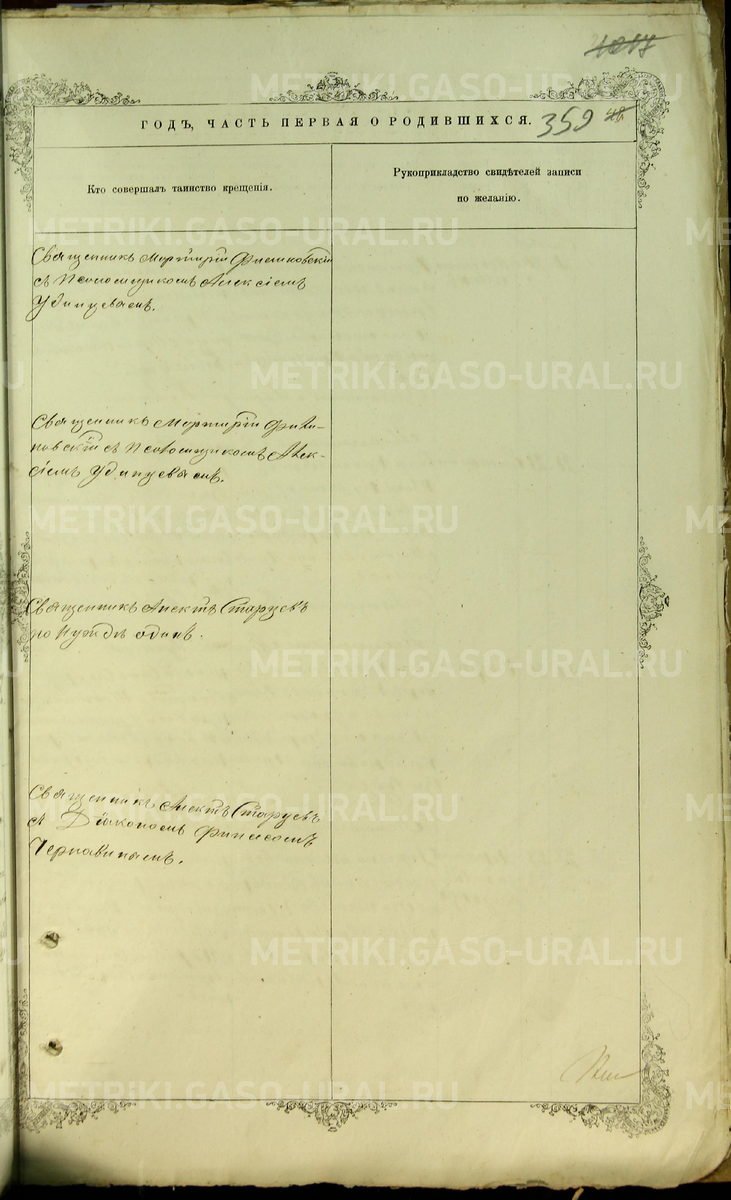 1047
ГОДЪ, ЧАСТЬ ПЕРВАЯ О РОДИВШИХСЯ. 359
Кто совершалъ таинство крещенія.
Рукоприкладство свидѣтелей записи
по желанію.
Священникъ Мартирій Филиповскій
съ Псаломщикомъ Алексіемъ
Удинцевымъ.
Священникъ Мартирій Фили-
повскій съ Псаломщикомъ Алек-
сіемъ Удинцевымъ.
Священникъ Анектъ Старцевъ
по нуждѣ одинъ.
Священникъ Анектъ Старцевъ
съ Діакономъ Финеесомъ
Чернавинымъ.
METRIKI.GASO-URAL.RU